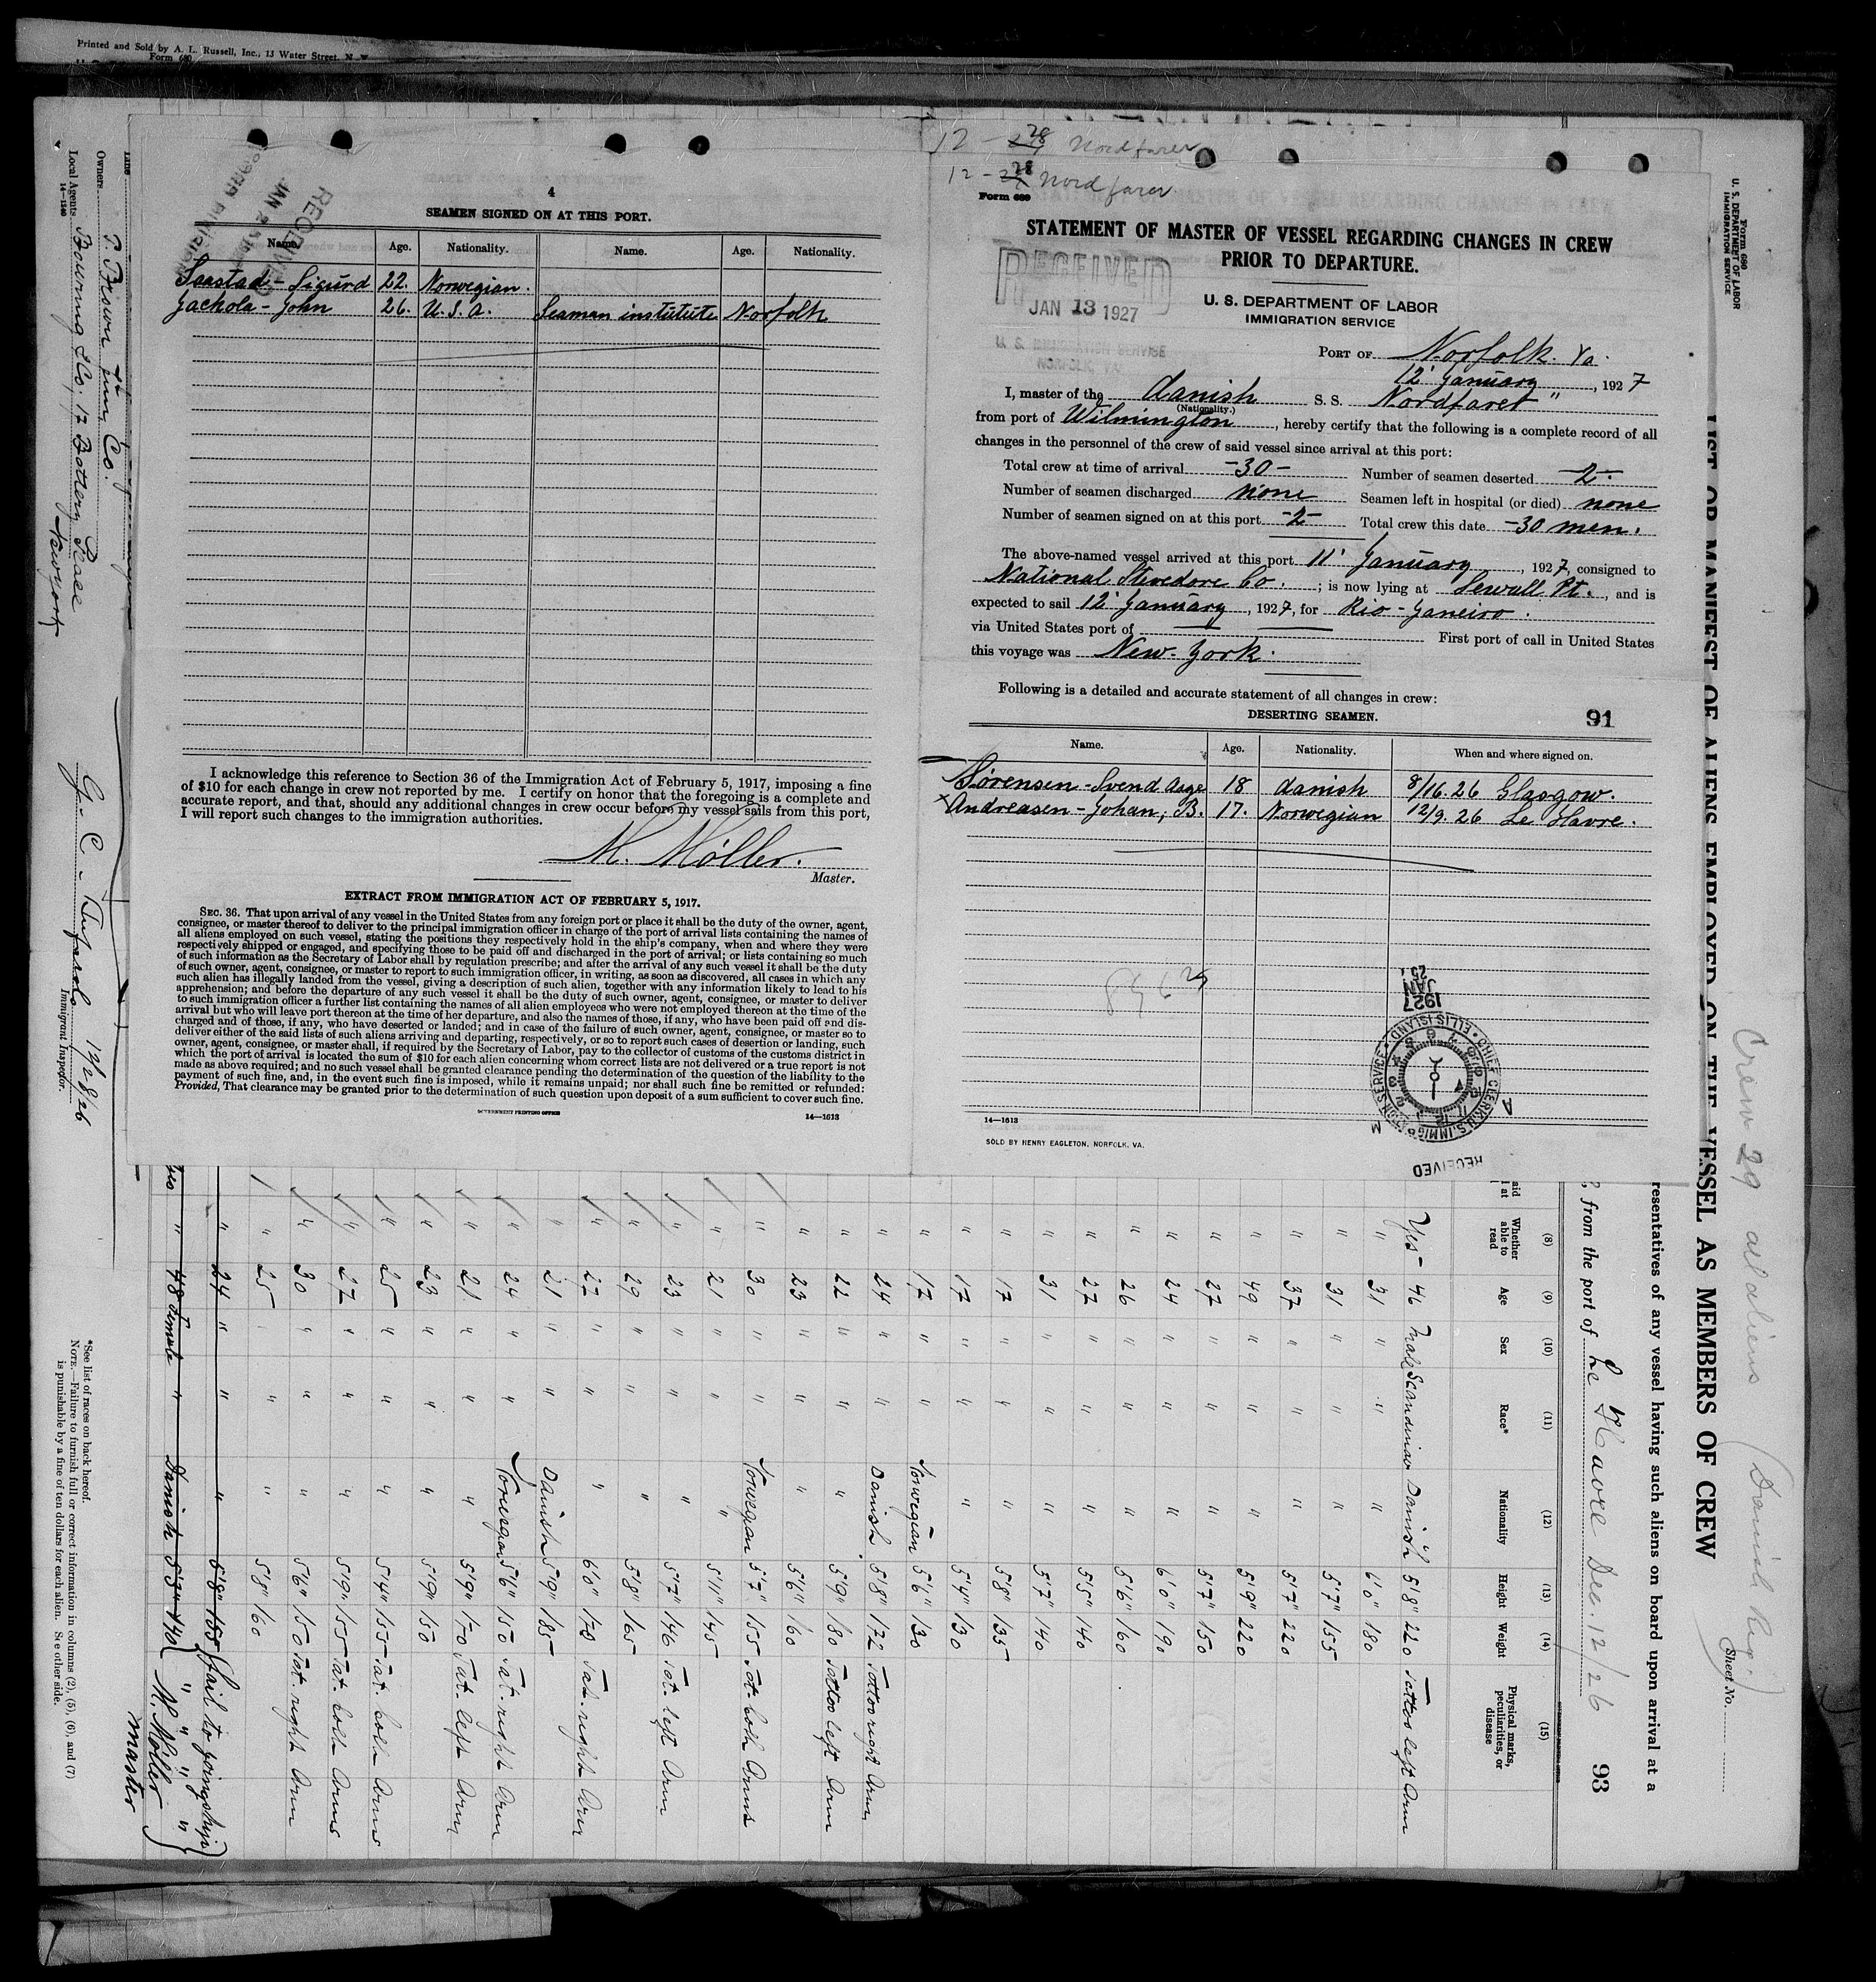 Printed and Sold by A. L. Russell, Inc., 13 Water Street, N. Y.
Form 680
4
SEAMEN SIGNED ON AT THIS PORT.
Name. Age. Nationality. Name. Age. Nationality.
Saastad - Sigurd 22. Norwegian.
Jachola - John 26. U.S.A. Seaman institute Norfolk
I acknowledge this reference to Section 36 of the Immigration Act of February 5, 1917, imposing a fine
of $10 for each change in crew not reported by me. I certify on honor that the foregoing is a complete and
accurate report, and that, should any additional changes in crew occur before my vessel sails from this port,
I will report such changes to the immigration authorities.
M. Möller.
Master.
EXTRACT FROM IMMIGRATION ACT OF FEBRUARY 5, 1917.
SEC. 36. That upon arrival of any vessel in the United States from any foreign port or place it shall be the duty of the owner, agent,
consignee, or master thereof to deliver to the principal immigration officer in charge of the port of arrival lists containing the names of
all aliens employed on such vessel, stating the positions they respectively hold in the ship's company, when and where they were
respectively shipped or engaged, and specifying those to be paid off and discharged in the port of arrival; or lists containing so much
of such information as the Secretary of Labor shall by regulation prescribe; and after the arrival of any such vessel it shall be the duty
of such owner, agent, consignee, or master to report to such immigration officer, in writing, as soon as discovered, all cases in which any
such alien has illegally landed from the vessel, giving a description of such alien, together with any information likely to lead to his
apprehension; and before the departure of any such vessel it shall be the duty of such owner, agent, consignee, or master to deliver
to such immigration officer a further list containing the names of all alien employees who were not employed thereon at the time of the
arrival but who will leave port thereon at the time of her departure, and also the names of those, if any, who have been paid off and dis-
charged and of those, if any, who have deserted or landed; and in case of the failure of such owner, agent, consignee, or master so to
deliver either of the said lists of such aliens arriving and departing, respectively, or so to report such cases of desertion or landing, such
owner, agent, consignee, or master shall, if required by the Secretary of Labor, pay to the collector of customs of the customs district in
which the port of arrival is located the sum of $10 for each alien concerning whom correct lists are not delivered or a true report is not
made as above required; and no such vessel shall be granted clearance pending the determination of the question of the liability to the
payment of such fine, and, in the event such fine is imposed, while it remains unpaid; nor shall such fine be remitted or refunded:
Provided, That clearance may be granted prior to the determination of such question upon deposit of a sum sufficient to cover such fine.
GOVERNMENT PRINTING OFFICE 14—1613
12 - 28 Nordfarer
12 - 28 Nordfarer
Form 689
STATEMENT OF MASTER OF VESSEL REGARDING CHANGES IN CREW
PRIOR TO DEPARTURE.
RECEIVED
JAN 13 1927
U. S. IMMIGRATION SERVICE
NORFOLK, VA.
U. S. DEPARTMENT OF LABOR
IMMIGRATION SERVICE
PORT OF Norfolk. Va.
12' January, 1927
I, master of the danish S. S. Nordfaret "
(Nationality.)
from port of Wilmington, hereby certify that the following is a complete record of all
changes in the personnel of the crew of said vessel since arrival at this port:
Total crew at time of arrival -30- Number of seamen deserted -2-
Number of seamen discharged none Seamen left in hospital (or died) none
Number of seamen signed on at this port -2- Total crew this date -30 men.
The above-named vessel arrived at this port 11' January, 1927, consigned to
National Stevedore Co. ; is now lying at Sewall Pt., and is
expected to sail 12' January, 1927, for Rio - Janeiro.
via United States port of First port of call in United States
this voyage was New-York.
Following is a detailed and accurate statement of all changes in crew:
DESERTING SEAMEN. 91
Name. Age. Nationality. When and where signed on.
Sörensen - Svend Aage 18 danish 8/16. 26 Glasgow.
x Andreasen - Johan, B. 17. Norwegian 12/9. 26 Le Havre.
1927 JAN 25
CHIEF CLERK U.S. IMMIGRATION SERVICE ELLIS ISLAND
RECEIVED
14—1613
SOLD BY HENRY EAGLETON, NORFOLK, VA.
Form 680
U. S. DEPARTMENT OF LABOR
IMMIGRATION SERVICE
LIST OR MANIFEST OF ALIENS EMPLOYED ON THE VESSEL AS MEMBERS OF CREW
Crew 29 all aliens (Danish Reg.)
Sheet No.
resentatives of any vessel having such aliens on board upon arrival at a
, from the port of Le Havre Dec. 12/26 93
(8) (9) (10) (11) (12) (13) (14) (15)
Whether able to read Age Sex Race* Nationality Height Weight Physical marks, peculiarities, or disease
Yes - 46 Male Scandinav Danish 5'8" 220 Tattoo left Arm
" 31 " " " 6'0" 180
" 31 " " " 5'7" 155
" 37 " " " 5'7" 220
" 49 " " " 5'9" 220
" 27 " " " 5'7" 150
" 24 " " " 6'0" 190
" 26 " " " 5'6" 160
" 27 " " " 5'5" 140
" 31 " " " 5'7" 140
" 17 " " " 5'8" 135
" 17 " " " 5'4" 130
" 17 " " Norwegian 5'6" 130
" 24 " " Danish 5'8" 172 Tattoo right Arm
" 22 " " " 5'9" 180 Tattoo left Arm
" 23 " " " 5'6" 160
" 30 " " Norwegian 5'7" 155 Tat. both Arms
" 21 " " " 5'11" 145
" 23 " " " 5'7" 146 Tat. left Arm
" 29 " " " 5'8" 165
" 27 " " " 6'0" 170 Tat. right Arm
" 21 " " Danish 5'9" 185
" 24 " " Norwegian 5'6" 150 Tat. right Arm
" 21 " " " 5'9" 170 Tat. left Arm
" 23 " " " 5'9" 150
" 25 " " " 5'4" 155 Tat. both Arms
" 27 " " " 5'9" 155 Tat. both Arms
" 30 " " " 5'6" 150 Tat. right Arm
" 25 " " " 5'8" 160
" 24 " " " 5'8" 155 Fail to joing ship
" 48 Female " Danish 5'3" 140 " " " "
M. Möller
Master
*See list of races on back hereof.
NOTE.—Failure to furnish full or correct information in columns (2), (5), (6), and (7)
is punishable by a fine of ten dollars for each alien. See other side.
Line
Owners
Local Agents Bowring & Co. 17 Battery Place
Newyork
14—1240
12/28/26
Immigrant Inspector.